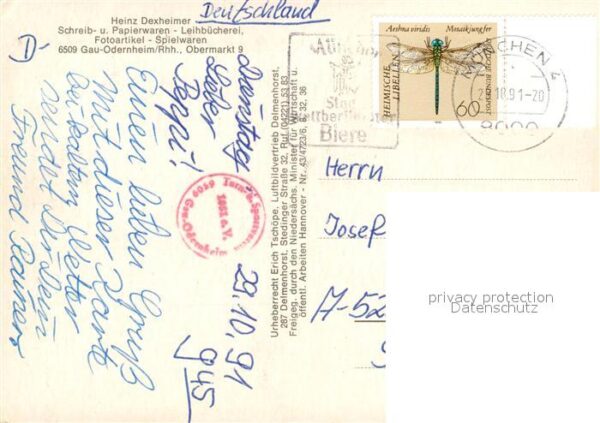 Deutschland
Heinz Dexheimer
Schreib- u. Papierwaren - Leihbücherei,
Fotoartikel - Spielwaren
6509 Gau-Odernheim/Rhh., Obermarkt 9
D
Dienstag,
29.10.91
945
Lieber
Peppi!
Einen lieben Gruß
Mit dieser Karte
bei kaltem Wetter
sendet Dir Dein
Freund Rainer
6509 Gau-Odernheim
1862 e.V.
Urheberrecht Erich Tschöpe, Luftbildvertrieb Delmenhorst,
287 Delmenhorst, Stedinger Straße 32, Ruf (04221) 53 83
Freigeg. durch den Niedersächs. Minister für Wirtschaft u.
öffentl. Arbeiten Hannover - Nr. 43/4723/6, 8, 32, 36
Stadt
weltberühmter
Biere
Aeshna viridis Mosaikjungfer
HEIMISCHE
LIBELLEN
DEUTSCHE BUNDESPOST
60
MÜNCHEN 4
18
91-20
8000
Herrn
Josef
A-52
privacy protection
Datenschutz